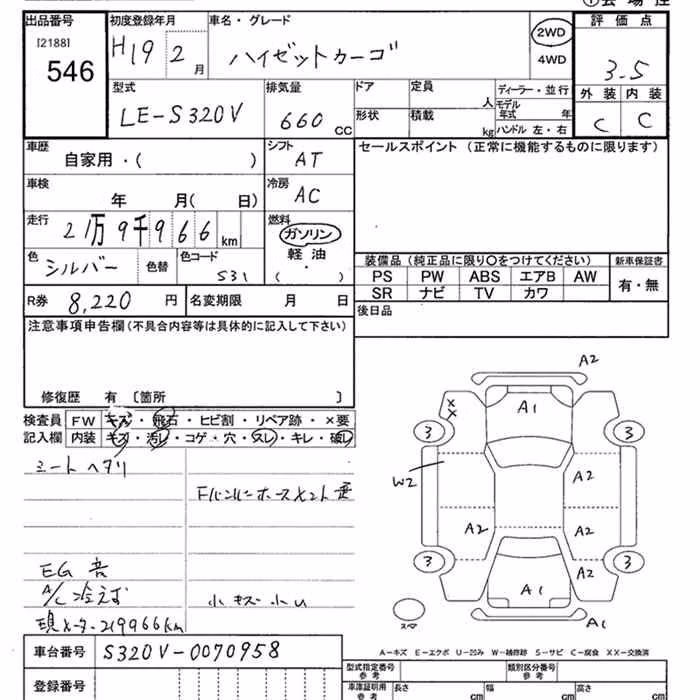 出品番号 初度登録年月 車名・グレード 2WD 評価点
[2188] H19 2月 ハイゼットカーゴ 4WD 3.5
546
型式 排気量 ドア 定員 人 ディーラー・並行 外装 内装
LE-S320V 660cc 形状 積載 kg モデル年式 年 C C
ハンドル 左・右
車歴 シフト セールスポイント (正常に機能するものに限ります)
自家用・( ) AT
車検 冷房
年 月( 日) AC
走行 燃料
21万9千966km ガソリン
色 色替 色コード 軽油
シルバー 531 ・( )
装備品 (純正品に限り○をつけてください) 新車保証書
PS PW ABS エアB AW 有・無
SR ナビ TV カワ
R券 8,220円 名変期限 月 日 後日品
注意事項申告欄 (不具合内容等は具体的に記入して下さい)
修復歴 有 〔箇所 〕
検査員 FW キズ・飛石・ヒビ割・リペア跡・×要
記入欄 内装 キズ・汚レ・コゲ・穴・スレ・キレ・破レ
シートヘタリ
EG 音
A/C冷えず
小キズ小凹
現メーター219966km
A2
A1
X
X
3 3
W2 A2
A2 A2
3 A2 3
A1
A1
A-キズ E-エクボ U-凹み W-補修跡 S-サビ C-腐食 XX-交換済
車台番号 S320V-0070958
登録番号
型式指定番号 参考 類別区分番号 参考
車庫証明用 参考 長さ cm 幅 cm 高さ cm